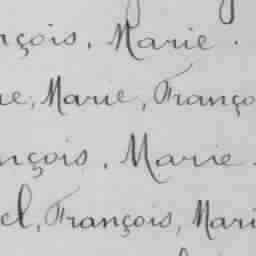 nçois. Marie.
ne, Marie, Franço
nçois. Marie.
el, François, Mari